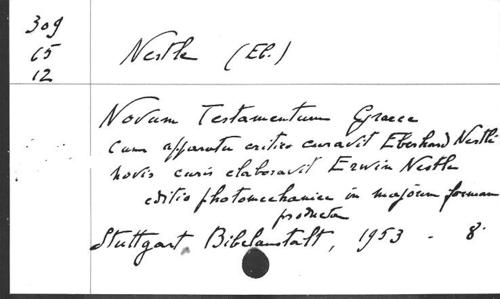 309
65
12
Nestle (Eb.)
Novum Testamentum Graece
cum apparatu critico curavit Eberhard Nestle
novis curis elaboravit Erwin Nestle
editio photomechanice in majorem formam
producta
Stuttgart Bibelanstalt, 1953 - 8.